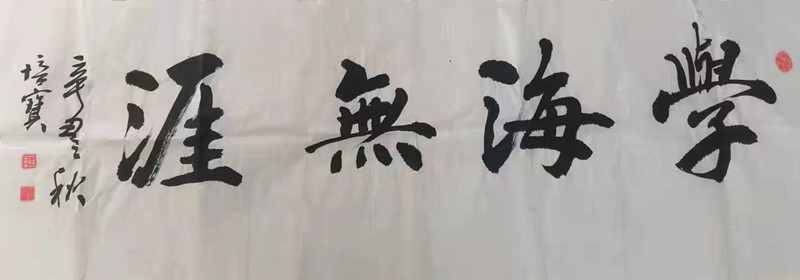 學海無涯
辛丑秋
培寶